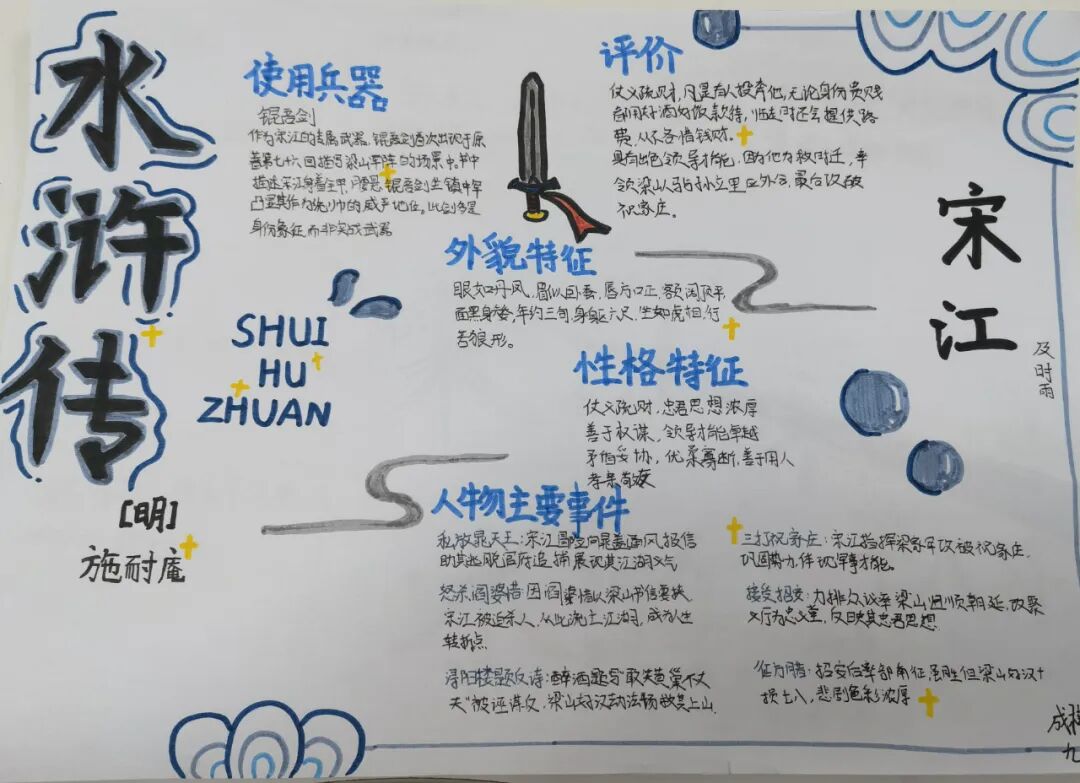 水浒传
[明]
施耐庵
SHUI
HU
ZHUAN
使用兵器
锟吾剑
作为宋江的专属武器,锟吾剑首次出现于原
著第七十六回描写梁山军阵的场景中,书中
描述宋江身着金甲,腰悬锟吾剑坐镇中军
凸显其作为统帅的威严地位。此剑多是
身份象征而非实战武器
评价
仗义疏财,凡是有人投奔他,无论身份贵贱
都用好酒好饭款待,临走时还会提供路
费,从不吝惜钱财。
具有出色领导才能,因他为救时迁,率
领梁山人马与孙立里应外合,最后攻破
祝家庄。
外貌特征
眼如丹凤,眉似卧蚕,唇方口正,额阔顶平
面黑身矮,年约三旬,身躯六尺,坐如虎相,行
若狼形。
性格特征
仗义疏财,忠君思想浓厚
善于权谋,领导才能卓越
矛盾妥协,优柔寡断,善于用人
孝亲尚友
人物主要事件
私放晁天王:宋江冒险向晁盖通风报信
助其逃脱官府追捕展现其江湖义气
怒杀阎婆惜:因阎婆惜以梁山书信要挟
宋江被迫杀人,从此流亡江湖,成为人生
转折点
浔阳楼题反诗:醉酒题写"敢笑黄巢不丈
夫"被诬谋反,梁山好汉劫法场救其上山.
三打祝家庄:宋江指挥梁家军攻破祝家庄,
巩固势力,体现军事才能。
接受招安:力排众议率梁山归顺朝廷,改聚
义厅为忠义堂,反映其忠君思想.
征方腊:招安后率部南征虽胜但梁山好汉十
损七八,悲剧色彩浓厚
宋江
及时雨
九